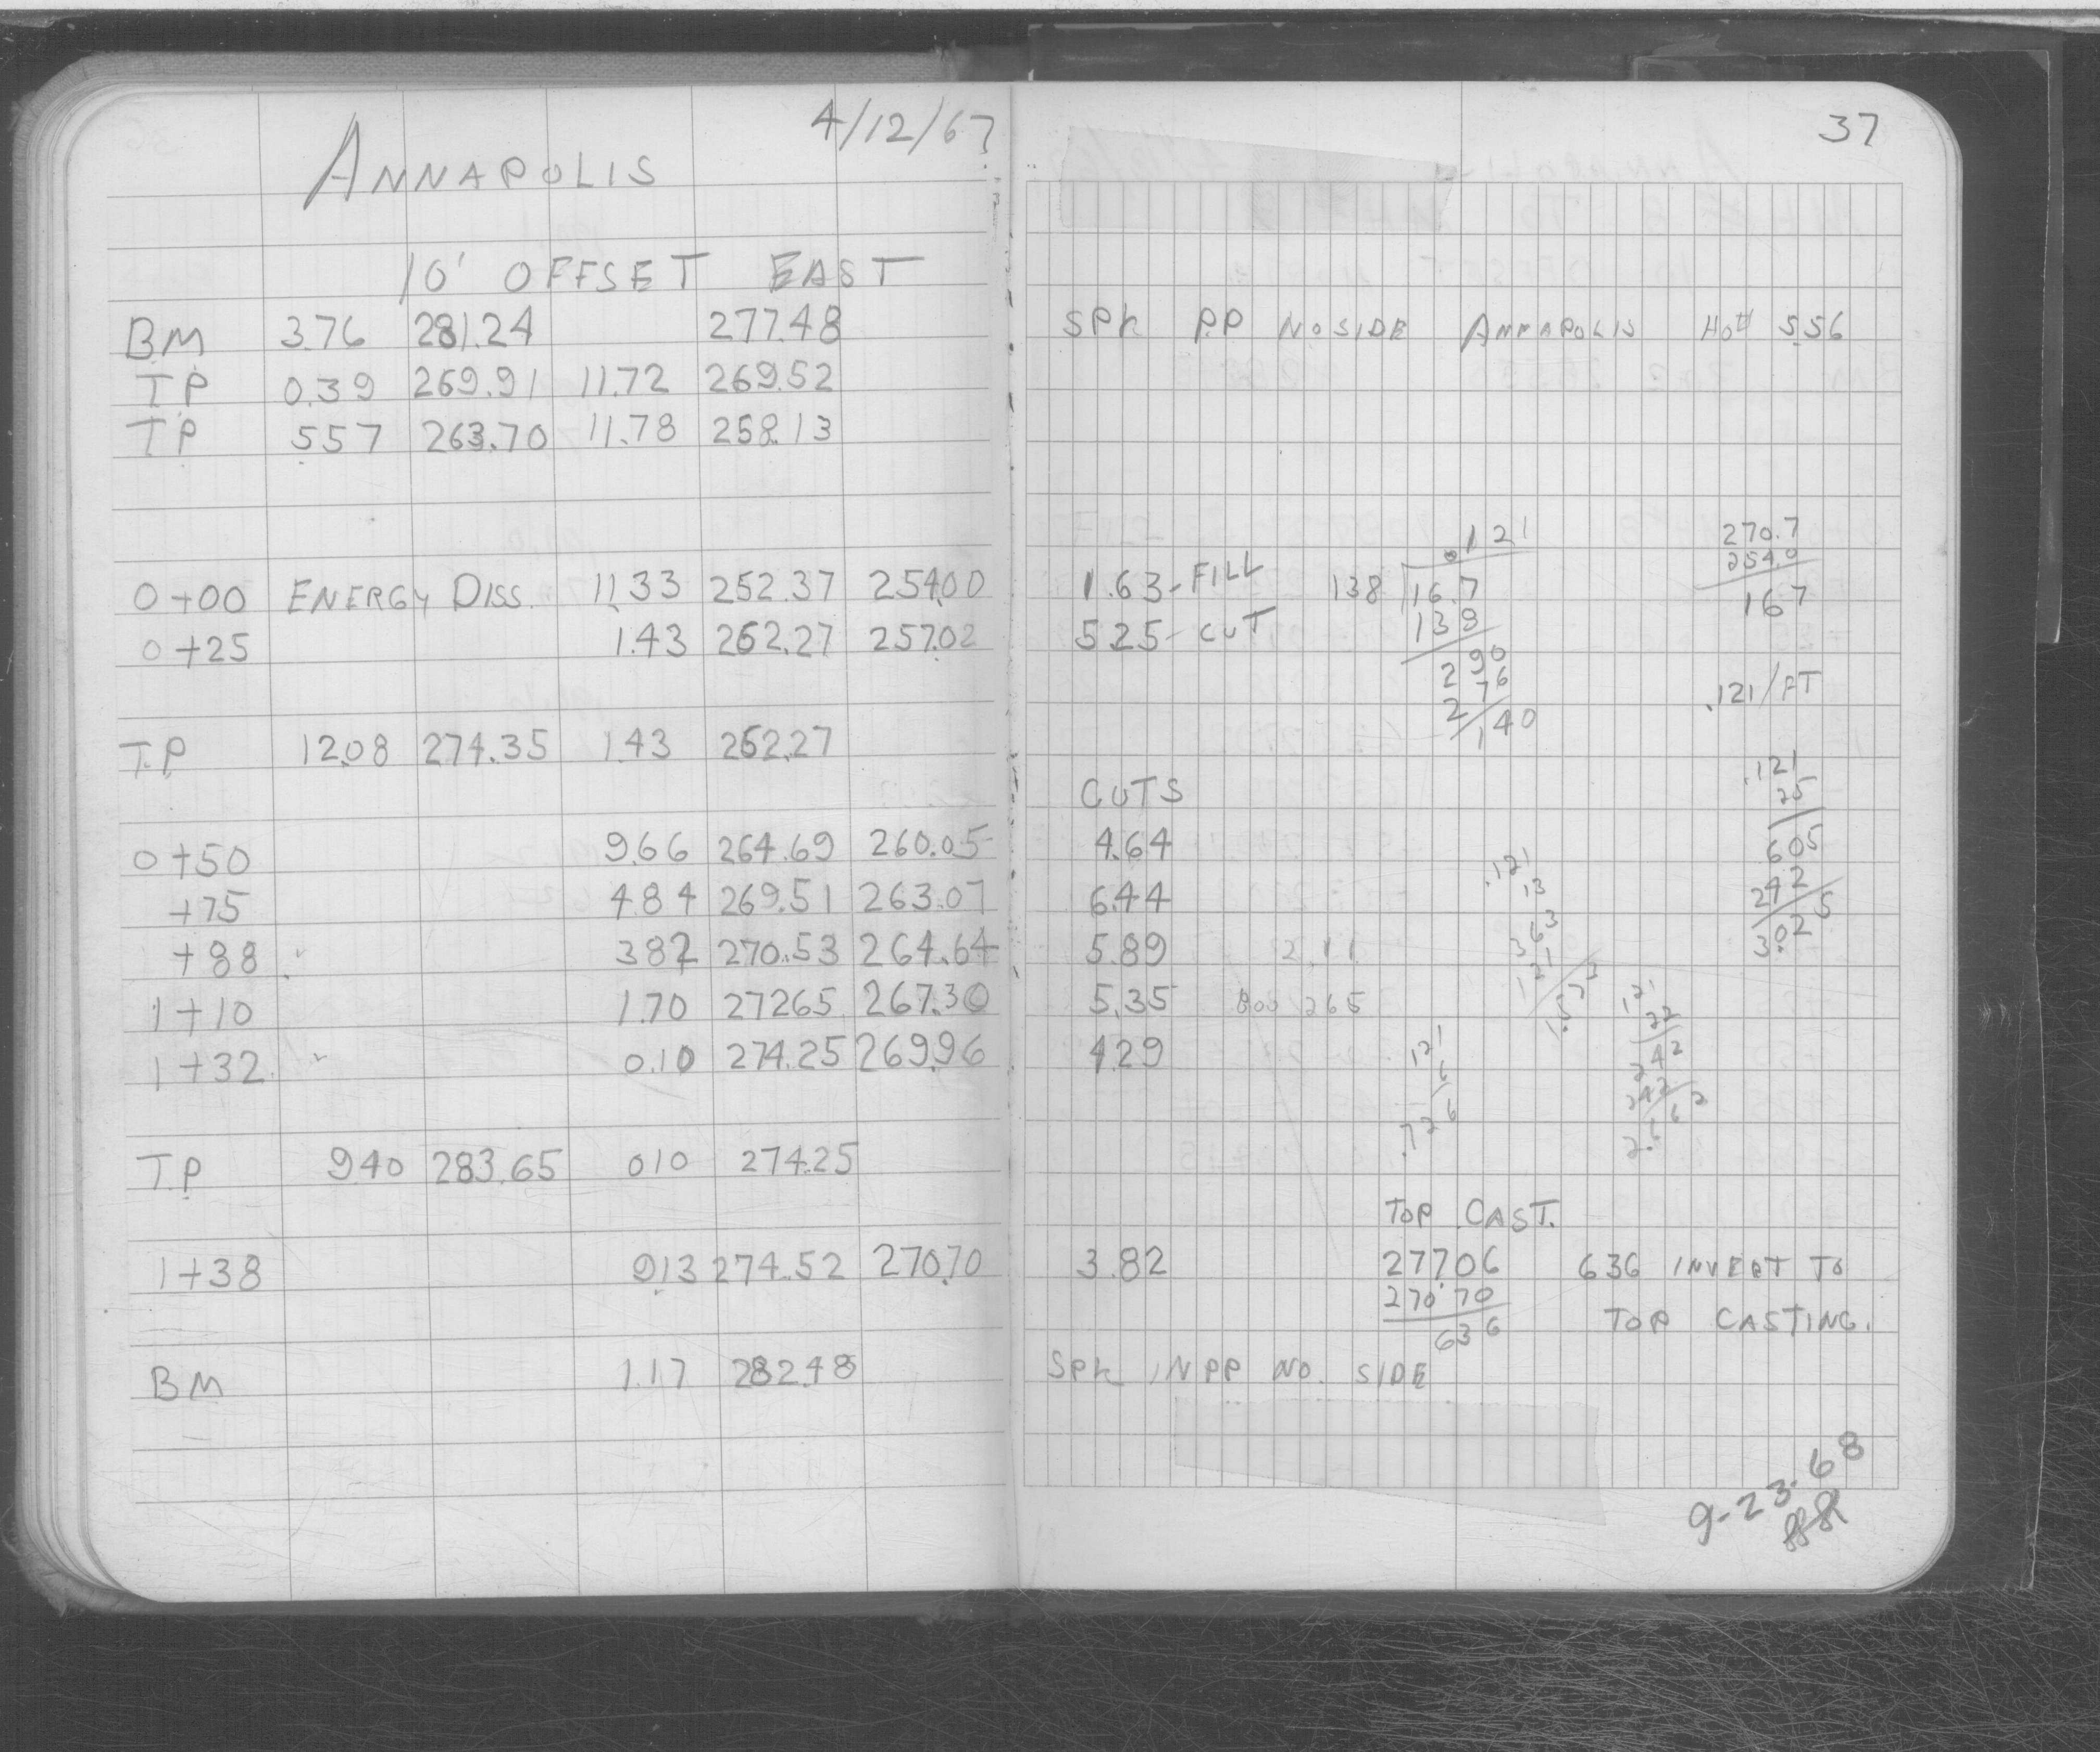 4/12/67
ANNAPOLIS
10' OFFSET EAST
BM 3.76 281.24 277.48
TP 0.39 269.91 11.72 269.52
TP 5.57 263.70 11.78 258.13
0+00 ENERGY DISS. 11.33 252.37 254.00
0+25 1.43 262.27 257.02
T.P 12.08 274.35 1.43 262.27
0+50 9.66 264.69 260.05
+75 4.84 269.51 263.07
+88 3.82 270.53 264.64
1+10 1.70 272.65 267.30
1+32 0.10 274.25 269.96
T.P 9.40 283.65 0.10 274.25
1+38 9.13 274.52 270.70
BM 1.17 282.48
37
SPK PP NO SIDE ANNAPOLIS HO# 556
1.63 - FILL
5.25 - CUT
.121
138 16.7
138
290
276
140
270.7
254.0
167
.121/FT
CUTS
4.64
6.44
5.89 2.11
5.35 265
4.29
.121
25
605
242
3.025
.121
13
363
121
1.573
121
22
242
242
2.662
121
6
.726
TOP CAST.
3.82 277.06 636 INVERT TO
270.70 TOP CASTING.
636
SPK IN PP NO. SIDE
9-23-68